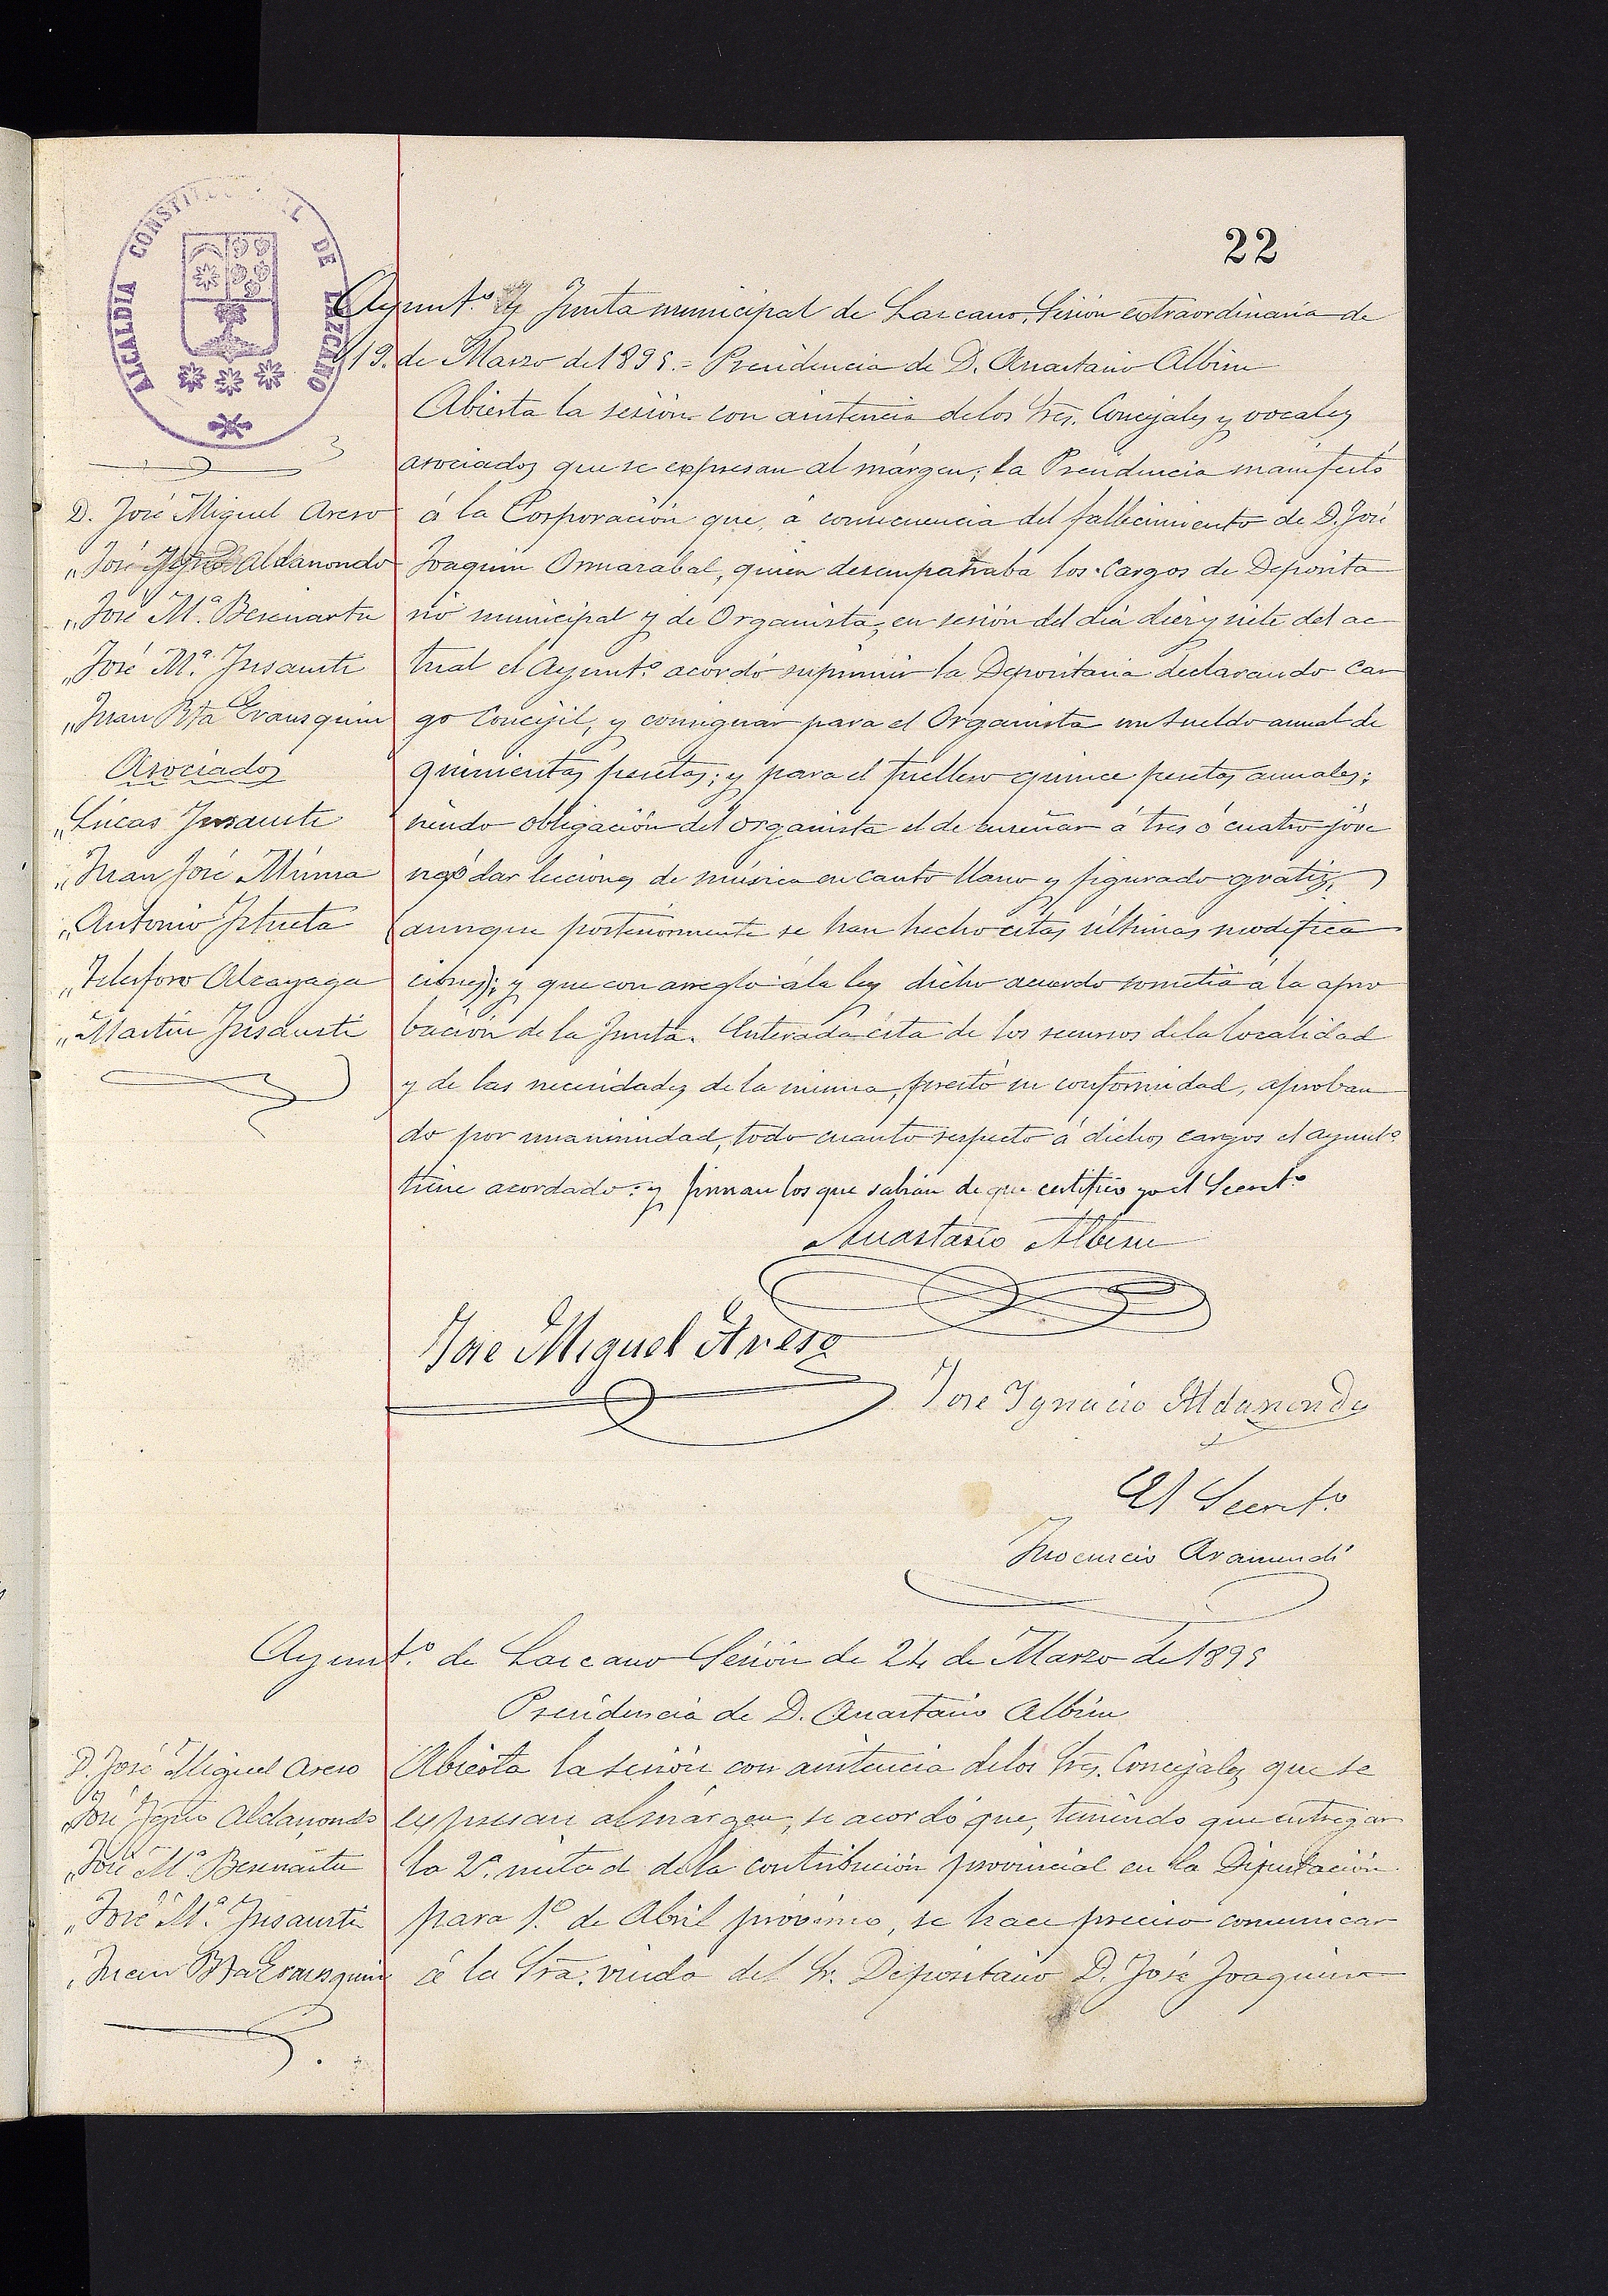 ALCALDIA CONSTITUCIONAL DE LAZCANO
22
Ayunt.º y Junta municipal de Lazcano, Sesión extraordinaria de
19. de Marzo de 1895.= Presidencia de D. Anastasio Albisu
Abierta la sesión con asistencia delos Sres. Concejales y vocales
asociados que se expresan al márgen; la Presidencia manifestó
á la Corporación que, á consecuencia del fallecimiento de D. José
Joaquin Ormazabal, quien desempañaba los Cargos de Deposita
rio municipal y de Organista, en sesión del día diez y siete del ac
tual el Ayunt.º acordó suprimir la Depositaria declarando Car
go Concejil, y consignar para el Organista un Sueldo anual de
quinientas pesetas; y para el fuellero quince pesetas anuales;
siendo obligación del organista el de enseñar á tres ó cuatro jóve
nes ó dar lecciones de música en canto llano y figurado gratis,
(aunque posteriormente se han hecho estas últimas modifica
ciones); y que con arreglo ála ley dicho acuerdo sometía á la apro
bación de la Junta. Enterada ésta de los recursos dela localidad
y de las necesidades de la misma, prestó su conformidad, aproban
do por unanimidad, todo cuanto respecto á dichos cargos el Ayunt.º
tiene acordado: y firman los que sabian de que certifico yo el Secret.º
D. José Miguel Areso
" José Ignº Aldanondo
" José M.ª Beserartu
" José M.ª Insausti
" Juan Bta Erausquin
Asociados
" Lúcas Insausti
" Juan José Múxica
" Antonio Iztueta
" Telesforo Alcayaga
" Martin Insausti
Anastasio Albisu
Jose Miguel Areso
Jose Ygnacio Aldanondo
El Secret.º
Inocencio Aramendi
Ayunt.º de Lazcano Sesión de 24 de Marzo de 1895
Presidencia de D. Anastasio Albisu
Abierta la sesión con asistencia delos Sres. Concejales que se
expresan al márgen, se acordó que, teniendo que entregar
la 2ª. mitad dela contribución provincial en la Diputación
para 1.º de Abril próximo, se hace preciso comunicar
á la Sra. viuda del Sr. Depositario D. José Joaquin
D. José Miguel Areso
" José Ignº Aldanondo
" José M.ª Beserartu
" José M.ª Insausti
" Juan Bta Erausquin